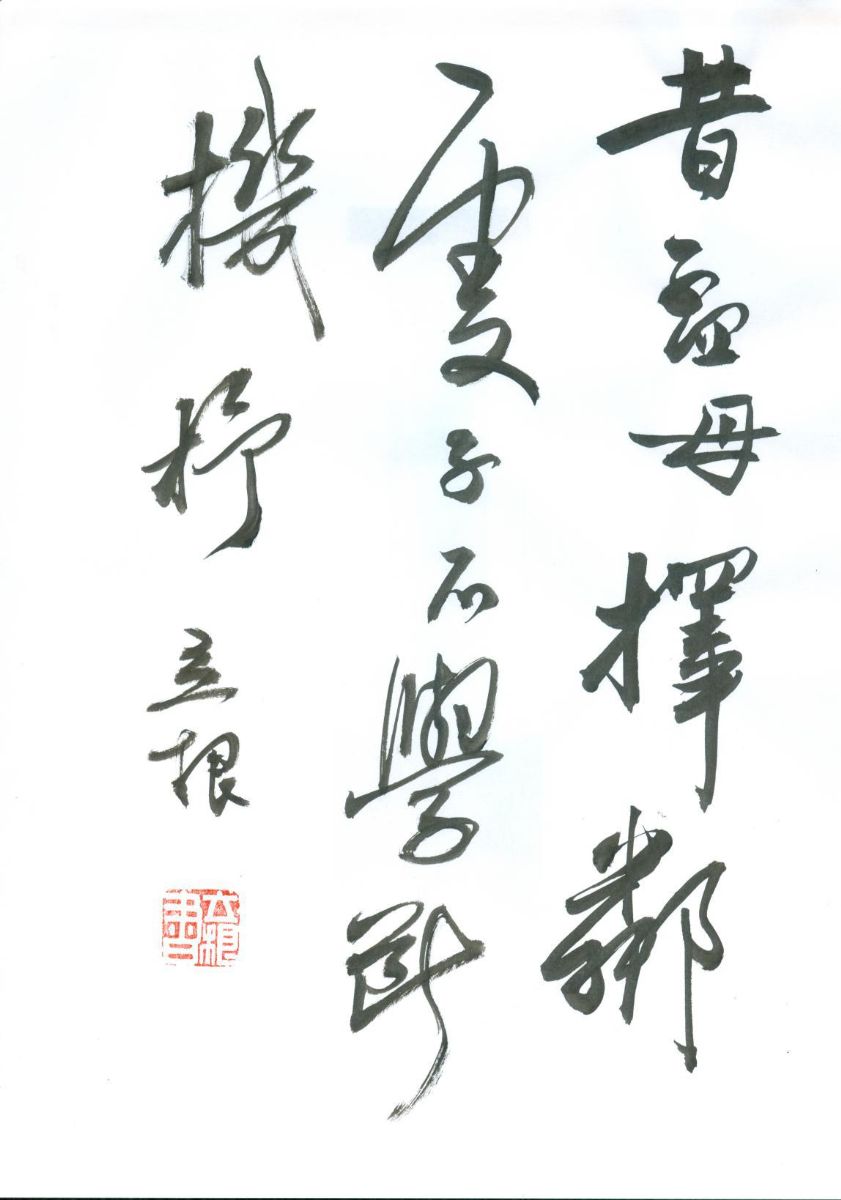 昔孟母擇鄰
處子不學斷
機杼
立根